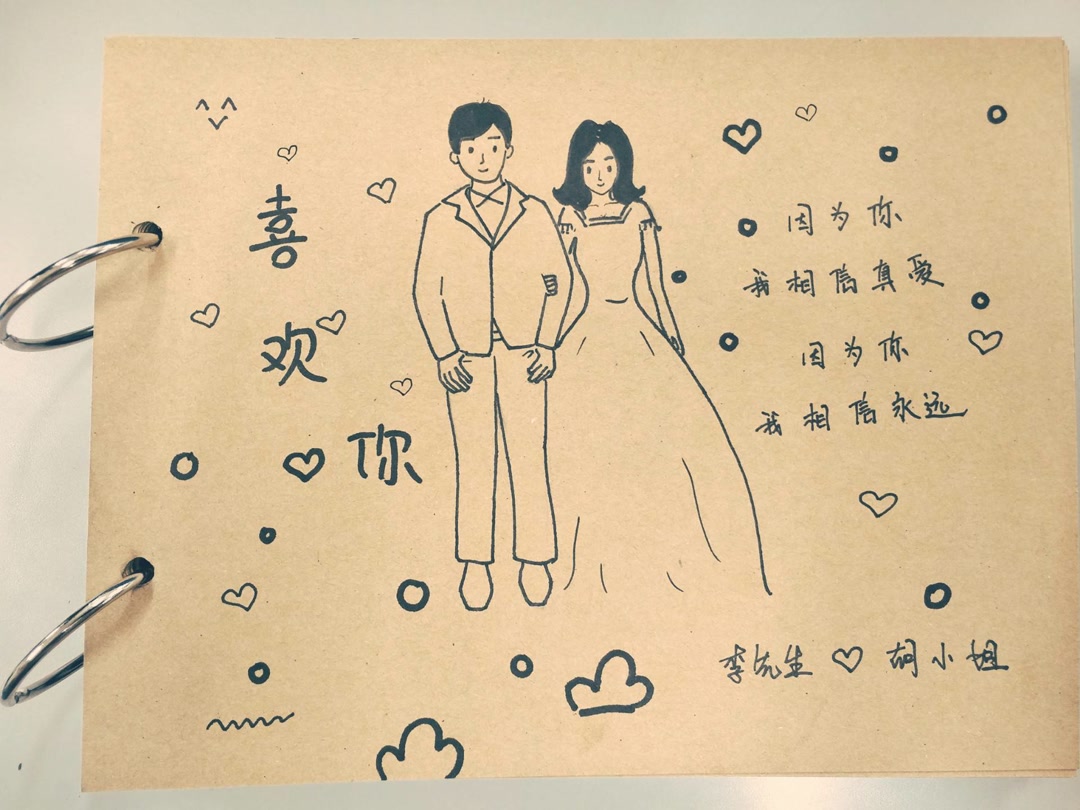 喜欢你
因为你
我相信真爱
因为你
我相信永远
李先生♡胡小姐